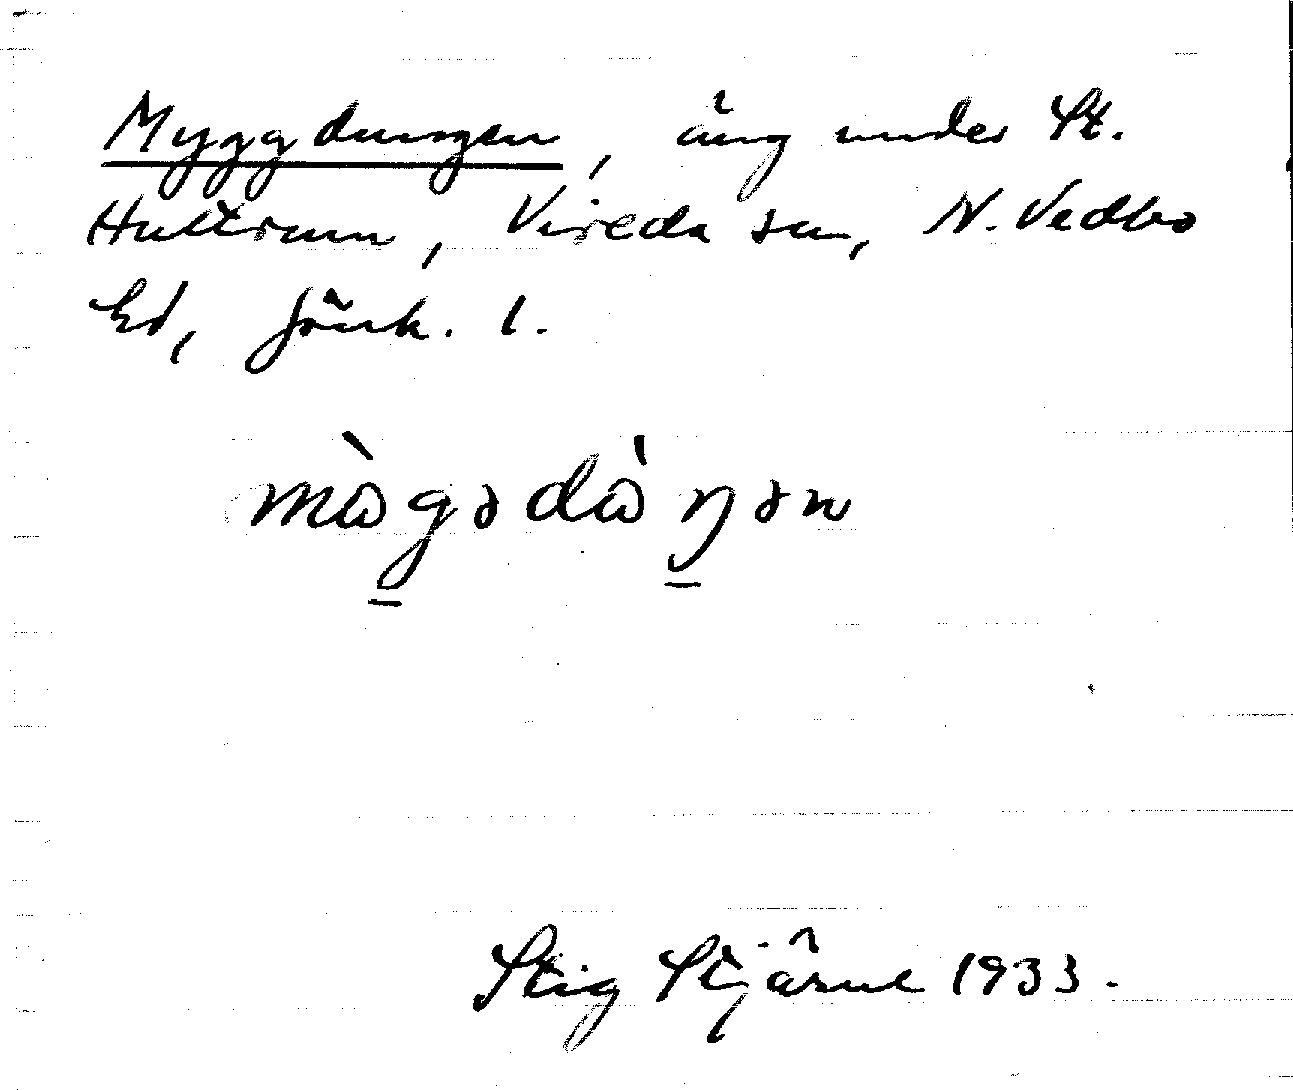 Myggdungen, äng under St.
Hultrum, Vireda sn, N. Vedbo
hd, Jönk. l.
mògədòŋən
Stig Stjärne 1933.